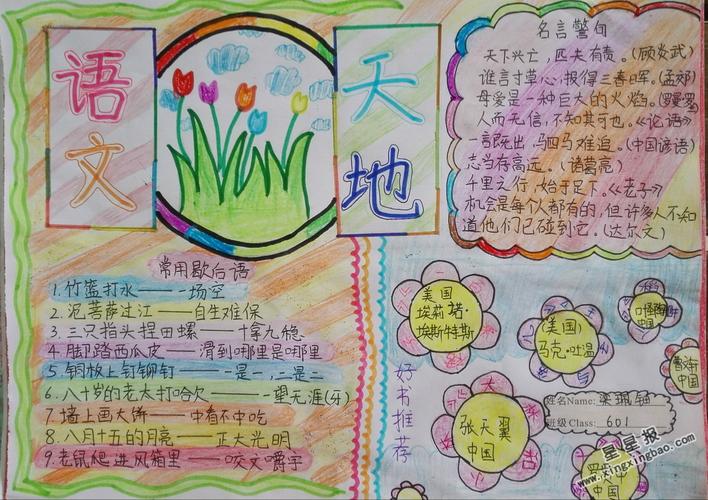 语文
天地
名言警句
天下兴亡，匹夫有责。(顾炎武)
谁言寸草心，报得三春晖。(孟郊)
母爱是一种巨大的火焰。(罗曼罗兰)
人而无信，不知其可也。《论语》
一言既出，马四马难追。(中国谚语)
志当存高远。(诸葛亮)
千里之行，始于足下。《老子》
机会是每个人都有的，但许多人不知
道他们已碰到它。(达尔文)
常用歇后语
1.竹篮打水——一场空
2.泥菩萨过江——自生难保
3.三只指头捏田螺——十拿九稳
4.脚踏西瓜皮——滑到哪里是哪里
5.铜板上钉铆钉——一是一，二是二
6.八十岁的老太打哈欠——一望无涯(牙)
7.墙上画大饼——中看不中吃
8.八月十五的月亮——正大光明
9.老鼠爬进风箱里——咬文嚼字
好书推荐
美国
埃莉诺·
埃斯特斯
(美国)
马克·吐温
中国
曹
中国
张天翼
中国
姓名Name:
班级Class: 601
中国
星星报
www.xingxingbao.com